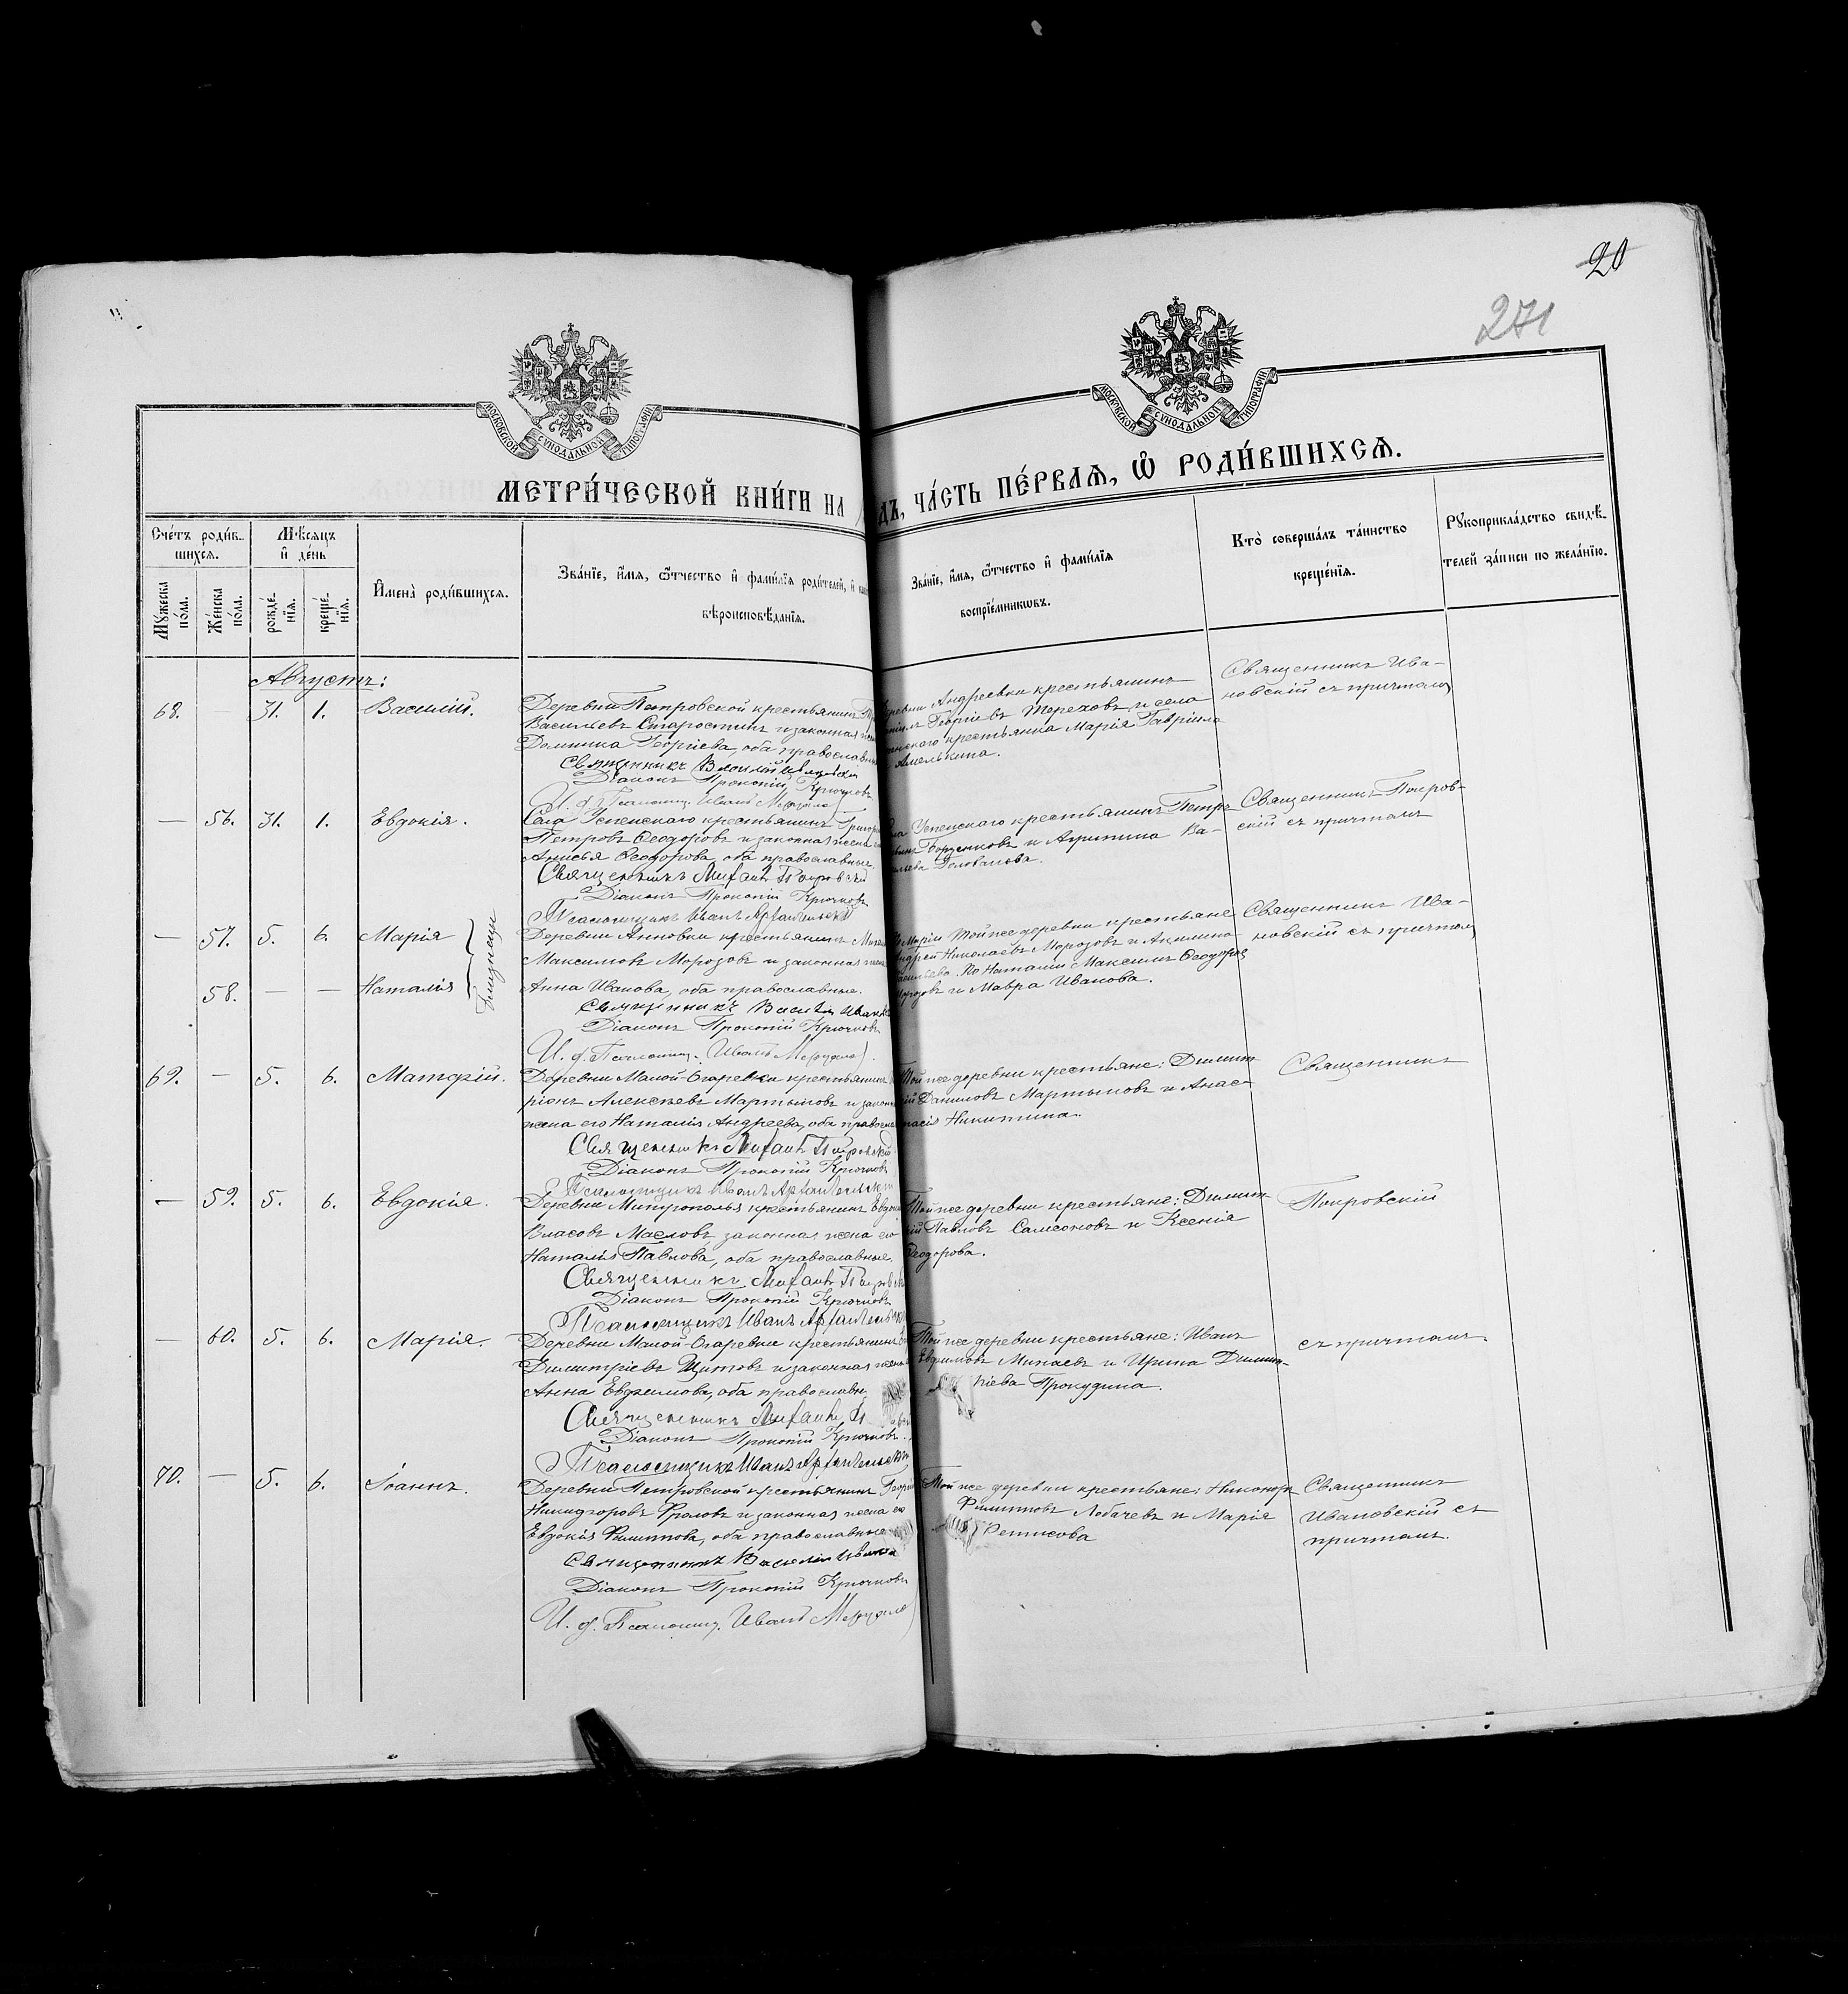 20
271
МОСКОВСКОЙ СѴНОДАЛЬНОЙ ТИПОГРАФІИ
МОСКОВСКОЙ СѴНОДАЛЬНОЙ ТИПОГРАФІИ
МЕТРИ́ЧЕСКОЙ КНИ́ГИ НА
ДЪ, ЧА́СТЬ ПЕ́РВАѦ, Ѽ РОДИ́ВШИХСѦ.
Сче́тъ роди́в-
шихсѧ.
Мꙋжеска по́ла.
Же́нска по́ла.
Мѣ́сѧцъ
и҆ де́нь
рожде́-
нїѧ.
креще́-
нїѧ.
И҆мена̀ роди́вшихсѧ.
Зва́нїе, и҆́мѧ, ѻ҆́тчество и҆ фами́лїѧ роди́телей, и҆
вѣроисповѣ́данїѧ.
Зва́нїе, и҆́мѧ, ѻ҆́тчество и҆ фами́лїѧ
воспрїе́мникѡвъ.
Кто̀ соверша́лъ та́инство
креще́нїѧ.
Рꙋкоприкла́дство свидѣ́-
телей за́писи по жела́нїю.
Августъ:
68. — 31. 1. Василій.
Деревни Петровской крестьянинъ
Васильевъ Старостинъ и законная
Домника Георгіева, оба православн
Священникъ Василій Ивановскій
Діаконъ Прокопій Крючковъ
И. д. Псаломщ. Иванъ
Андреевки крестьянинъ
Георгіевъ Тереховъ и села
крестьянка Марія Гавріило
Амелькина.
Священникъ Ива-
новскій съ причтомъ
— 56. 31. 1. Евдокія.
Села Успенскаго крестьянинъ Григор
Петровъ Ѳеодоровъ и законная жена
Анисья Ѳеодорова, оба православные.
Священникъ Покровскій
Діаконъ Прокопій Крючковъ
Псаломщикъ Иванъ
Успенскаго крестьянинъ Петръ
и Агрипина Ва-
Голованова.
Священникъ Покров-
скій съ причтомъ
— 57. 5. 6. Марія
58. — — Наталія
Близнецы
Деревни Анновки крестьянинъ
Максимовъ Морозовъ и законная жена
Анна Иванова, оба православные.
Священникъ Василій Иван
Діаконъ Прокопій Крючковъ
И. д. Псаломщ. Иванъ
Маріи той же деревни крестьяне
Андрей Николаевъ Морозовъ и Акилина
По Наталіи Максимъ Ѳеодоровъ
Морозовъ и Мавра Иванова.
Священникъ Ива-
новскій съ причтомъ
69. — 5. 6. Матѳій.
Деревни Малой-Огаревки крестьянинъ
ріонъ Алексѣевъ Мартыновъ и закон
жена его Наталія Андреева, оба правосл
Священникъ Покровскій
Діаконъ Прокопій Крючковъ
Псаломщикъ Иванъ
Той же деревни крестьяне: Димит-
рій Даниловъ Мартыновъ и Анас-
тасія Никитина.
Священникъ
— 59. 5. 6. Евдокія.
Деревни Митрополья крестьянинъ Евдок
Власовъ Масловъ, законная жена его
Наталія Павлова, оба православные.
Священникъ
Діаконъ Прокопій Крючковъ
Псаломщикъ Иванъ
Той же деревни крестьяне: Димит-
рій Павловъ Самсоновъ и Ксенія
Ѳеодорова.
Покровскій
— 60. 5. 6. Марія.
Деревни Малой-Огаревки крестьянинъ
Димитріевъ Щитовъ и законная жена
Анна Евфимова, оба православн
Священникъ
Діаконъ Прокопій Крючковъ
Псаломщикъ Иванъ
Той же деревни крестьяне: Иванъ
Евфимовъ Минаевъ и Ирина Димит-
ріева Прокудина.
съ причтомъ.
70. — 5. 6. Іоаннъ.
Деревни Петровской крестьянинъ Георгій
Никифоровъ Фроловъ и законная жена его
Евдокія Филиппова, оба православные
Священникъ Василій
Діаконъ Прокопій Крючковъ
И. д. Псаломщ. Иванъ
Той же деревни крестьяне: Никоноръ
Филипповъ Лобачевъ и Марія
Денисова
Священникъ
Ивановскій съ
причтомъ.